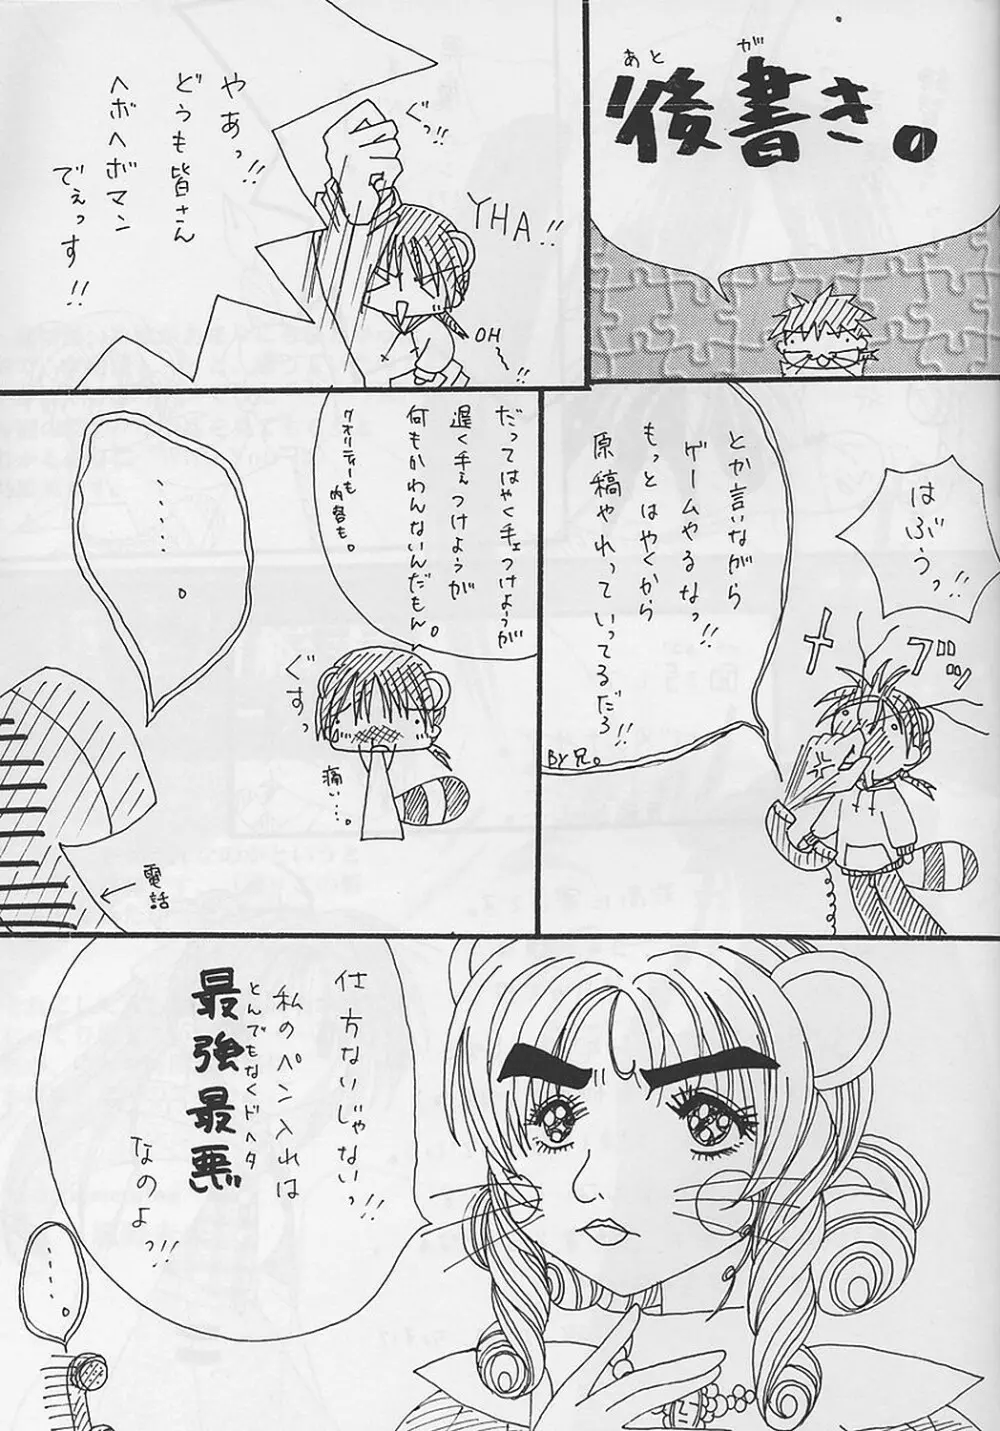 後書き。
あとが
ぐっ!!
やあっ!!
どうも皆さん
ヘボヘボマン
でぇっす!!
YHA!!
OH〜!!
はぶぅっ!!
メ゛ブッ
とか言いながら
ゲームやるなっ!!
もっとはやくから
原稿やれっていってるだろ!!
BY兄。
だってはやく手ェつけようが
遅く手ェつけようが
何もかわんないんだもん。
クオリティーも
内容も。
ぐすっ
痛い…。
……。
電話
仕方ないじゃないっ!!
私のペン入れは
最強最悪
とんでもなくドヘタ
なのよっ!!
……。